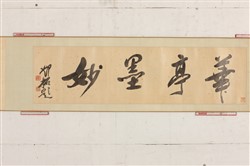 華亭墨妙